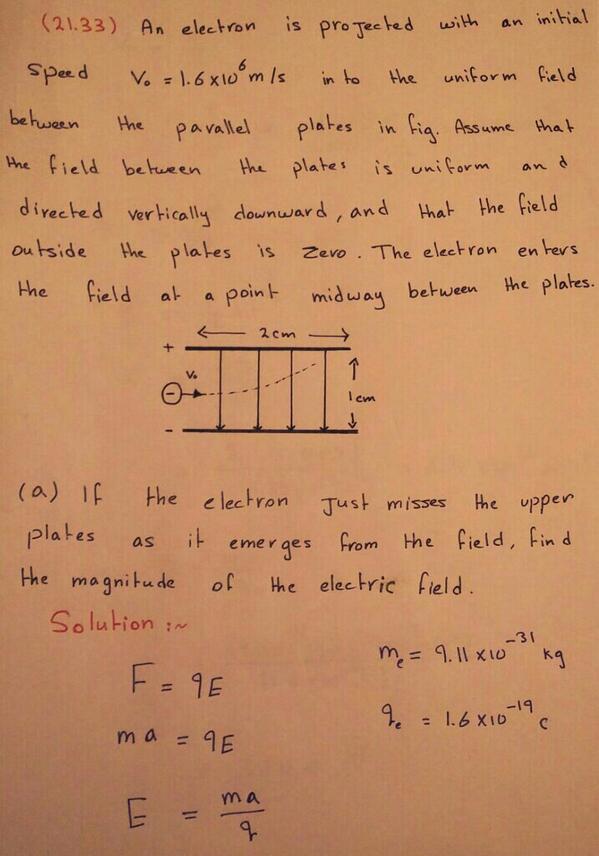 (21.33) An electron is projected with an initial
speed V₀ = 1.6x10⁶ m/s in to the uniform field
between the parallel plates in fig. Assume that
the field between the plates is uniform and
directed vertically downward, and that the field
outside the plates is zero. The electron enters
the field at a point midway between the plates.
2cm
+
V₀
−
1cm
-
(a) If the electron Just misses the upper
plates as it emerges from the field, find
the magnitude of the electric field.
Solution :~
mₑ = 9.11 x10⁻³¹ kg
F = qE
qₑ = 1.6 x10⁻¹⁹ C
ma = qE
E = ma/q